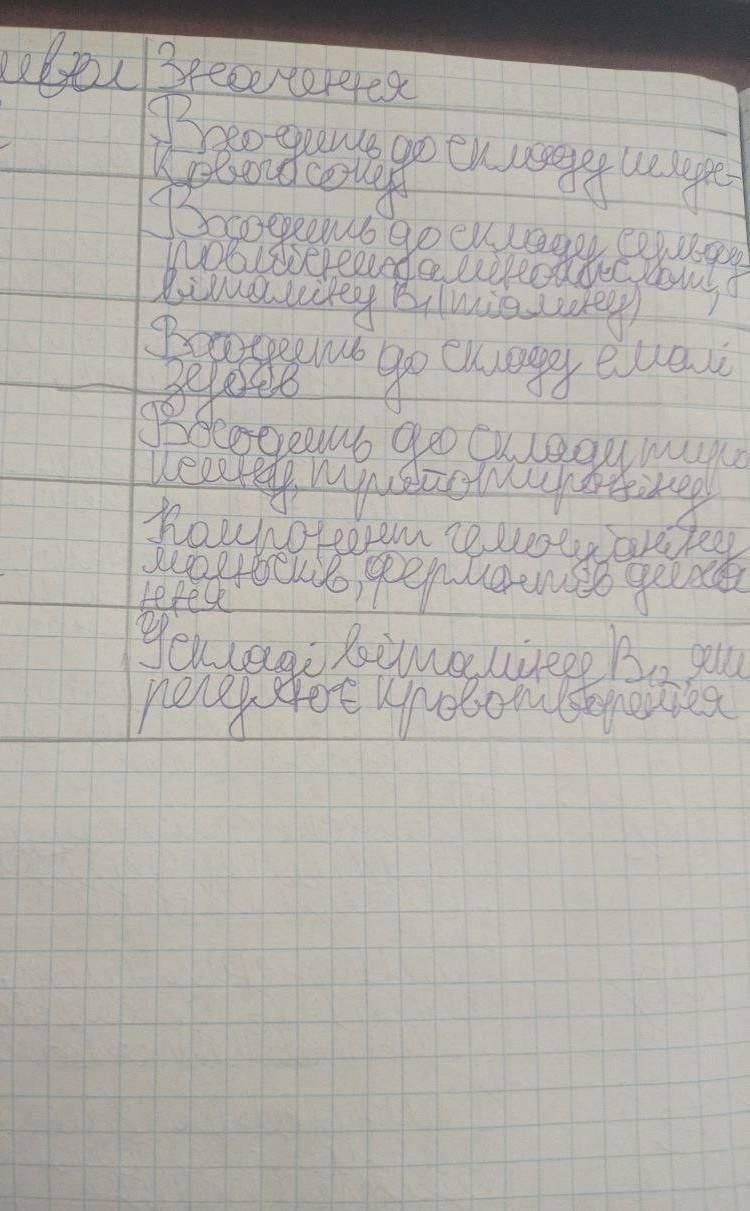 мвол Значення
Входить до складу шлун-
кового соку
Входить до складу сульфу
амінокислот,
вітаміну B₁ (тіаміну)
Входить до складу емалі
зубів
Входить до складу тиро
ксину, трийодтироніну
Компонент гемоціаніну
молюсків, ферментів диха
ння
У складі вітаміну B₁₂, яки
регулює кровотворення